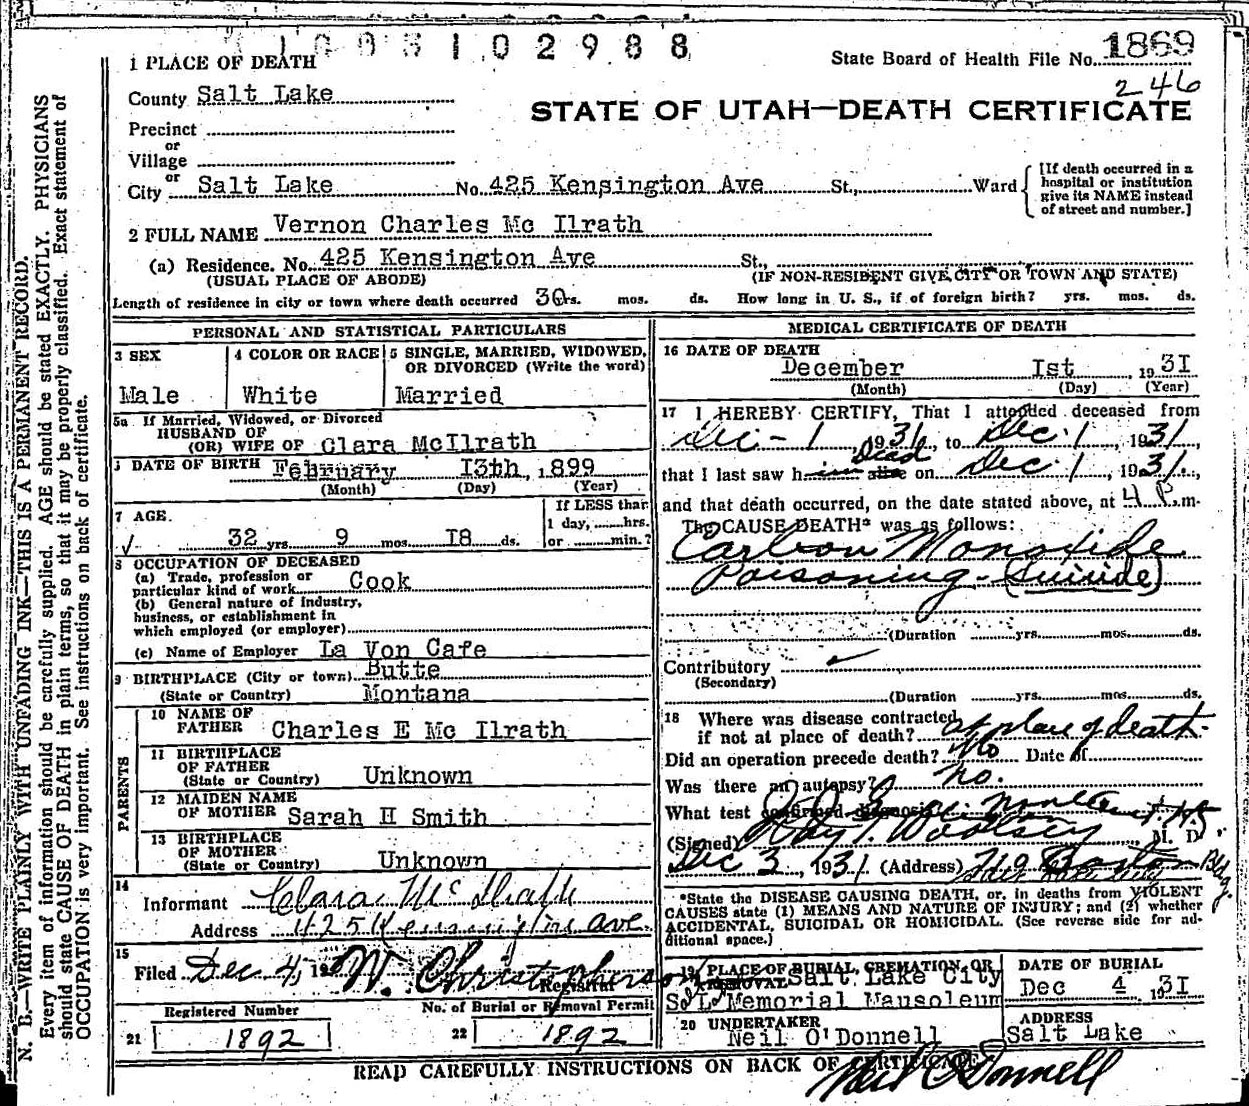 1003102988
State Board of Health File No. 1869
246
1 PLACE OF DEATH
County Salt Lake
STATE OF UTAH—DEATH CERTIFICATE
Precinct
or
Village
or
City Salt Lake No. 425 Kensington Ave St., Ward
[If death occurred in a hospital or institution give its NAME instead of street and number.]
2 FULL NAME Vernon Charles Mc Ilrath
(a) Residence. No. 425 Kensington Ave St.,
(USUAL PLACE OF ABODE) (IF NON-RESIDENT GIVE CITY OR TOWN AND STATE)
Length of residence in city or town where death occurred 30 yrs. mos. ds. How long in U. S., if of foreign birth? yrs. mos. ds.
PERSONAL AND STATISTICAL PARTICULARS
3 SEX
Male
4 COLOR OR RACE
White
5 SINGLE, MARRIED, WIDOWED, OR DIVORCED (Write the word)
Married
5a If Married, Widowed, or Divorced
HUSBAND OF
(OR) WIFE OF Clara McIlrath
DATE OF BIRTH February 13th, 1899
(Month) (Day) (Year)
7 AGE
32 yrs. 9 mos. 18 ds.
If LESS than
1 day, hrs.
or min.?
8 OCCUPATION OF DECEASED
(a) Trade, profession or
particular kind of work Cook
(b) General nature of industry,
business, or establishment in
which employed (or employer)
(c) Name of Employer La Von Cafe
9 BIRTHPLACE (City or town) Butte
(State or Country) Montana
PARENTS
10 NAME OF
FATHER Charles E Mc Ilrath
11 BIRTHPLACE
OF FATHER
(State or Country) Unknown
12 MAIDEN NAME
OF MOTHER Sarah H Smith
13 BIRTHPLACE
OF MOTHER
(State or Country) Unknown
14
Informant Clara McIlrath
Address 425 Kensington Ave.
15
Filed Dec 4, 193 W. Christopherson
Registrar
Registered Number
21 1892
No. of Burial or Removal Permit
22 1892
MEDICAL CERTIFICATE OF DEATH
16 DATE OF DEATH
December 1st 1931
(Month) (Day) (Year)
17 I HEREBY CERTIFY, That I attended deceased from
Dec - 1, 1931, to Dec. 1, 1931,
that I last saw him alive Dead on Dec. 1, 1931,
and that death occurred, on the date stated above, at 4 P. m.
The CAUSE DEATH* was as follows:
Carbon Monoxide
Poisoning - (Suicide)
(Duration yrs. mos. ds.
Contributory
(Secondary)
(Duration yrs. mos. ds.
18 Where was disease contracted
if not at place of death? at place of death.
Did an operation precede death? No Date of
Was there an autopsy? no.
What test confirmed diagnosis?
(Signed) Ray T. Woolsey M. D.
Dec 3, 1931 (Address) Boston Bldg.
*State the DISEASE CAUSING DEATH, or, in deaths from VIOLENT
CAUSES state (1) MEANS AND NATURE OF INJURY; and (2) whether
ACCIDENTAL, SUICIDAL OR HOMICIDAL. (See reverse side for ad-
ditional space.)
19 PLACE OF BURIAL, CREMATION, OR
REMOVAL Salt Lake City
S L Memorial Mausoleum
DATE OF BURIAL
Dec 4 1931
20 UNDERTAKER
Neil O'Donnell
ADDRESS
Salt Lake
READ CAREFULLY INSTRUCTIONS ON BACK OF CERTIFICATE
Neil O'Donnell
N. B.—WRITE PLAINLY WITH UNFADING INK—THIS IS A PERMANENT RECORD.
Every item of information should be carefully supplied. AGE should be stated EXACTLY. PHYSICIANS
should state CAUSE OF DEATH in plain terms, so that it may be properly classified. Exact statement of
OCCUPATION is very important. See instructions on back of certificate.